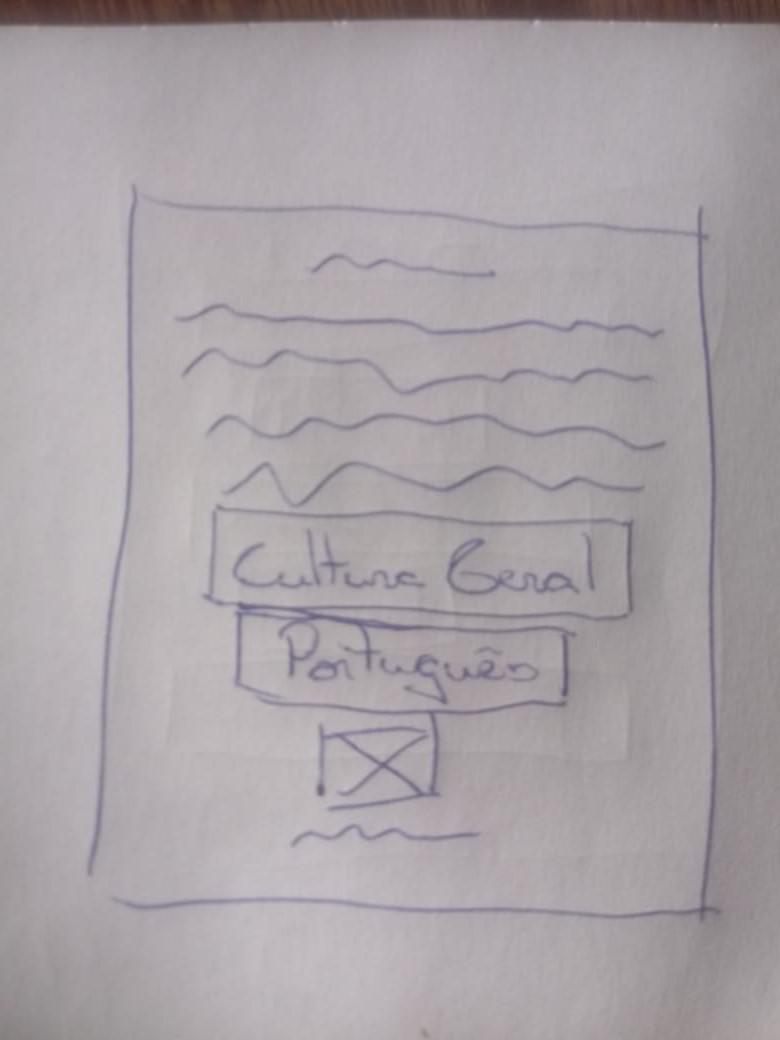 Cultura Geral
Português